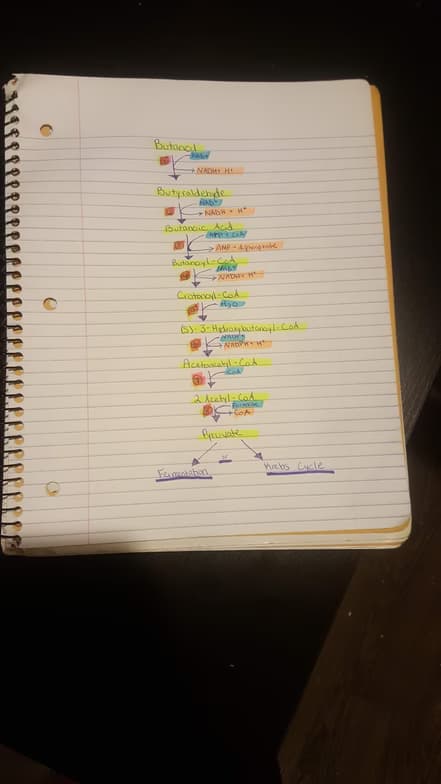 Butanol
NAD+
NADH + H+
Butyraldehyde
NAD+
NADH + H+
Butanoic Acid
AMP + diphosphate
Butanoyl-CoA
NAD+
NADH + H+
Crotonoyl-CoA
H2O
(S)-3-Hydroxybutanoyl-CoA
NADPH + H+
Acetoacetyl-CoA
CoA
2 Acetyl-CoA
CoA
Pyruvate
or
Fermentation Krebs Cycle